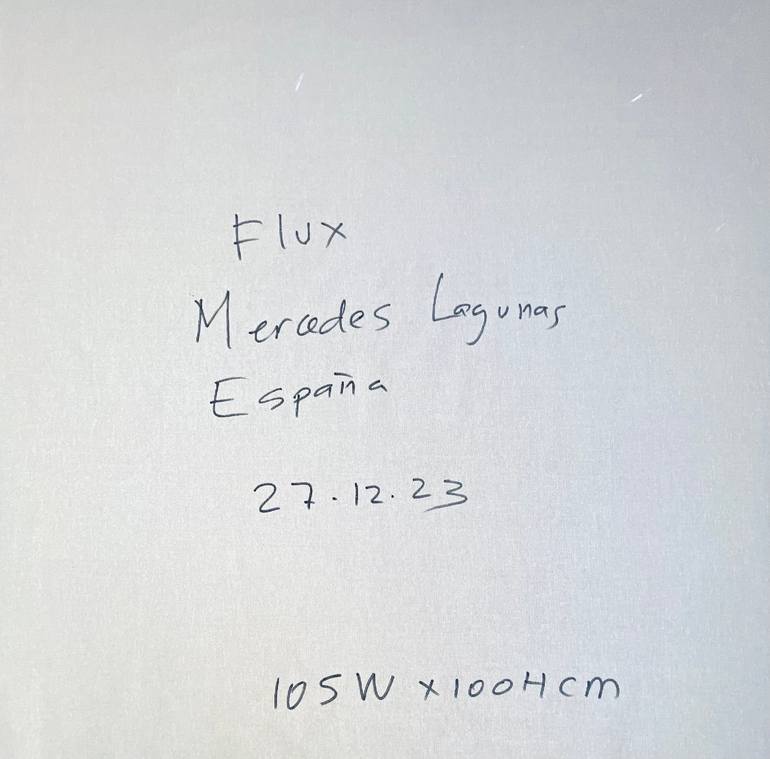 Flux
Mercedes Lagunas
España
27.12.23
105W x 100H cm